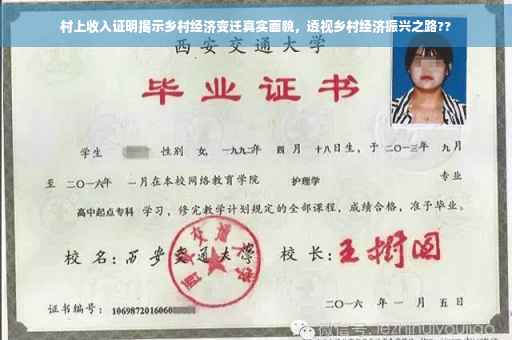 村上收入证明揭示乡村经济变迁真实面貌，透视乡村经济振兴之路??
西安交通大学
毕业证书
学生 性别 女，一九九二年 四月 十八日生，于二〇一三年 九月
至 二〇一六年 一月在本校网络教育学院 护理学 专业
高中起点专科 学习，修完教学计划规定的全部课程，成绩合格，准予毕业。
校名：西安交通大学 校长：王树国
西安交通大学
证书编号：1069872016060
二〇一六年 一月 五日
微信号: jiezhihuiyoujiao